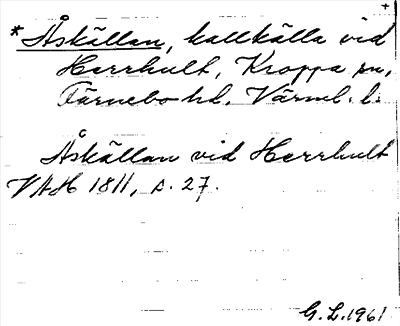 +
* Åskällan, kallkälla vid
Herrhult, Kroppa sn,
Färnebo hd. Värml. l.
Åskällan vid Herrhult
VAH 1811, s. 27.
G. L. 1961